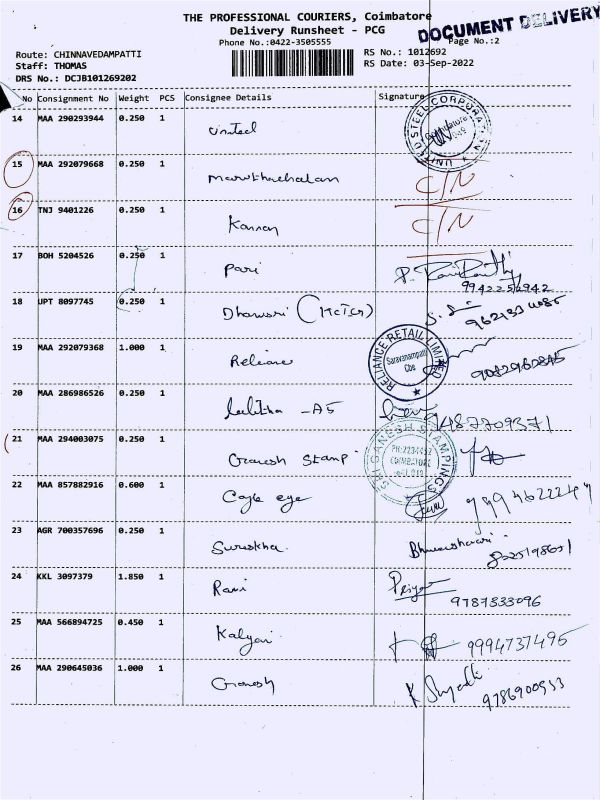 THE PROFESSIONAL COURIERS, Coimbatore
DOCUMENT DELIVERY
Delivery Runsheet - PCG
Phone No.:0422-3505555
Page No.:2
Route: CHINNAVEDAMPATTI
RS No.: 1012692
Staff: THOMAS
RS Date: 03-Sep-2022
DRS No.: DCJB101269202
No Consignment No Weight PCS Consignee Details Signature
14 MAA 290293944 0.250 1 United
UNITED STEEL CORPORATION
15 MAA 292079668 0.250 1 Maruthachalam C/N
16 TNJ 9401226 0.250 1 Kannan C/N
17 BOH 5204526 0.250 1 Pari
9942252942
18 UPT 8097745 0.250 1 Dhanusri
19 MAA 292079368 1.000 1 Reliance
RELIANCE RETAIL LIMITED
Saravanampatti
Cbe
20 MAA 286986526 0.250 1 Lalitha -A5
9487709371
21 MAA 294003075 0.250 1 Ganesh Stamp
SRI GANESH STAMPINGS
COIMBATORE
22 MAA 857882916 0.600 1 Eagle eye
23 AGR 700357696 0.250 1 Surekha
24 KKL 3097379 1.850 1 Ravi Priya
9787333096
25 MAA 566894725 0.450 1 Kalyani 9994737495
26 MAA 290645036 1.000 1 Ganesh
9786900533